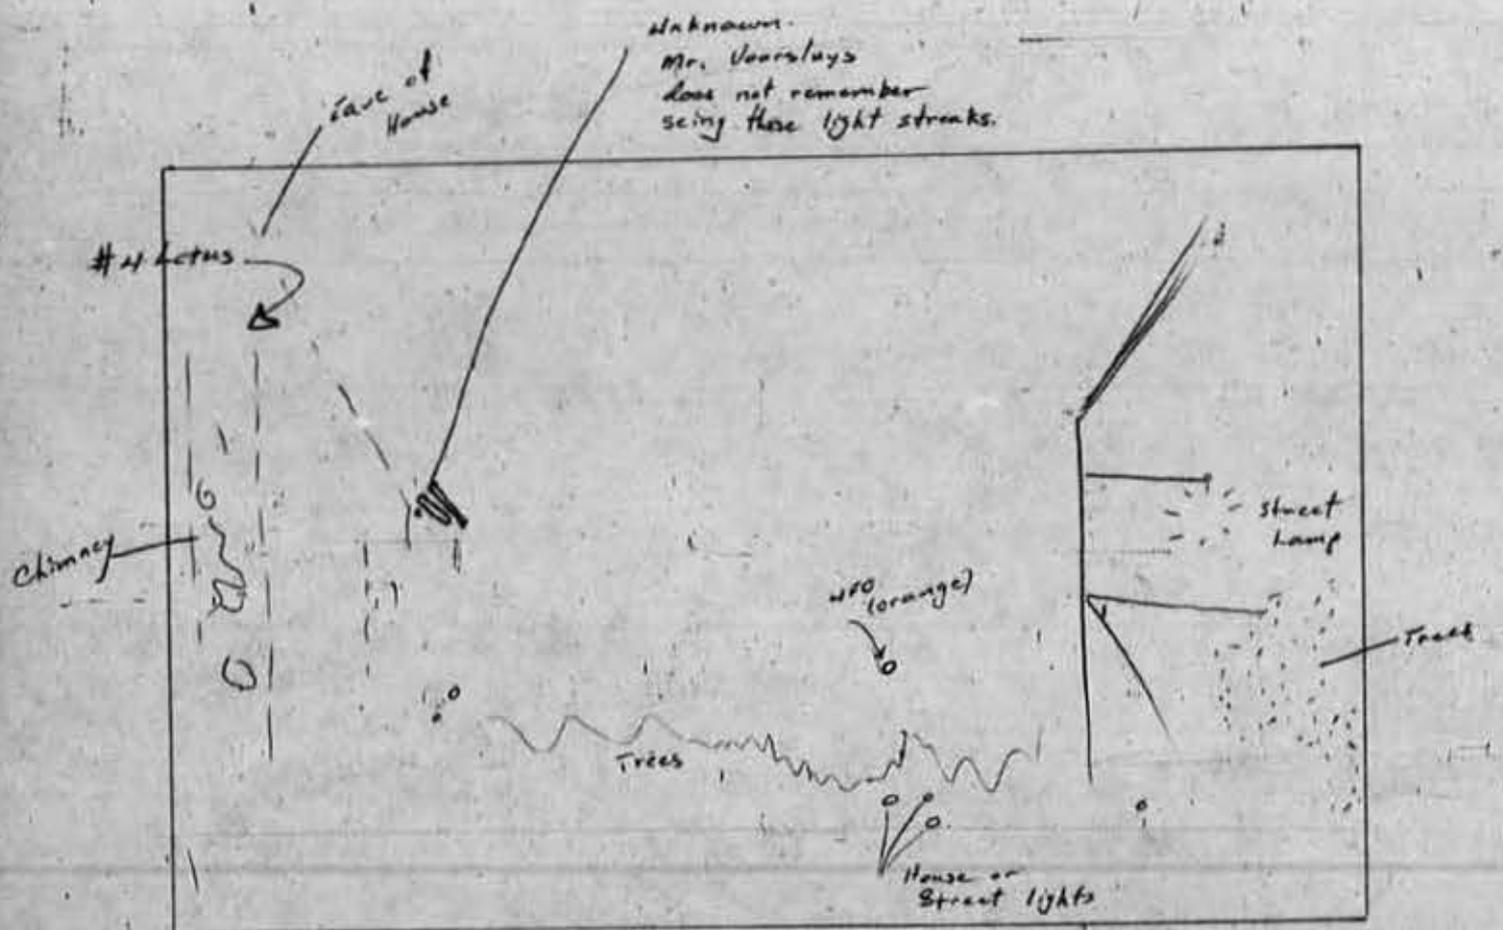 Unknown.
Mr. Voorsluys
does not remember
seing these light streaks.
Eave of
House
#4 Lotus
Chimney
UFO
(orange)
Street
Lamp
Trees
Trees
House or
Street lights